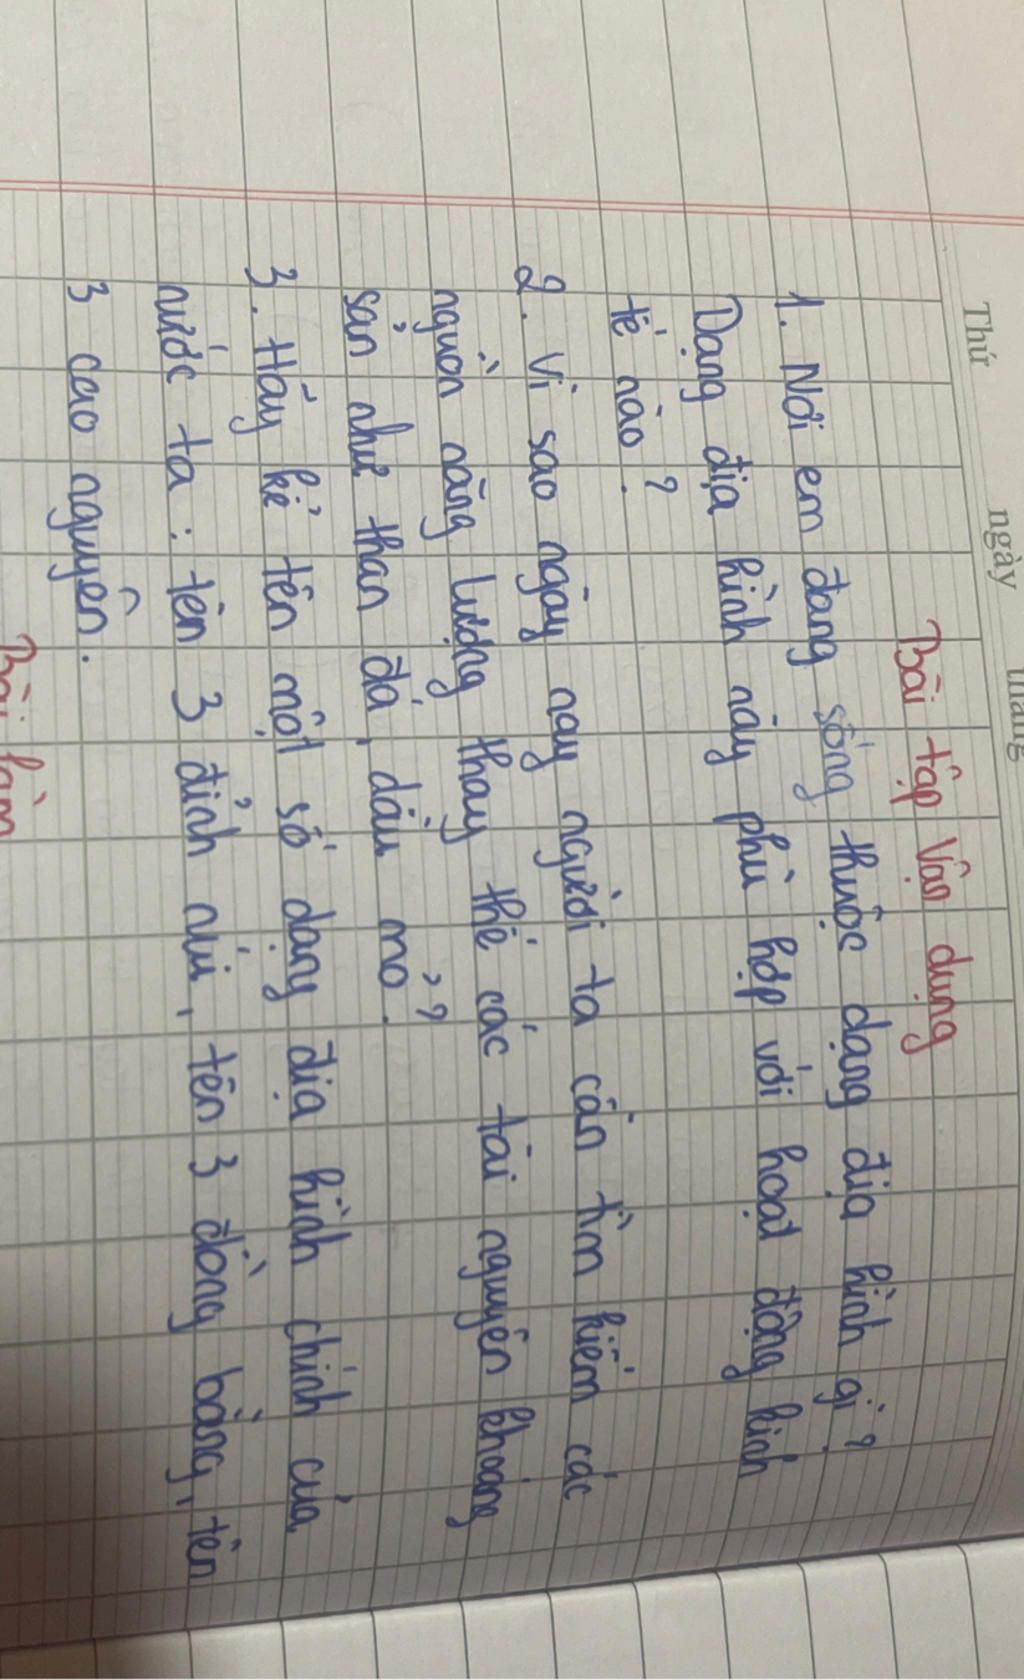 Thứ ngày tháng
Bài tập vận dụng
1. Nơi em đang sống thuộc dạng địa hình gì?
Dạng địa hình này phù hợp với hoạt động kinh
tế nào?
2. Vì sao ngày nay người ta cần tìm kiếm các
nguồn năng lượng thay thế các tài nguyên khoáng
sản như than đá, dầu mỏ?
3. Hãy kể tên một số dạng địa hình chính của
nước ta: tên 3 đỉnh núi, tên 3 đồng bằng, tên
3 cao nguyên.
Bài làm